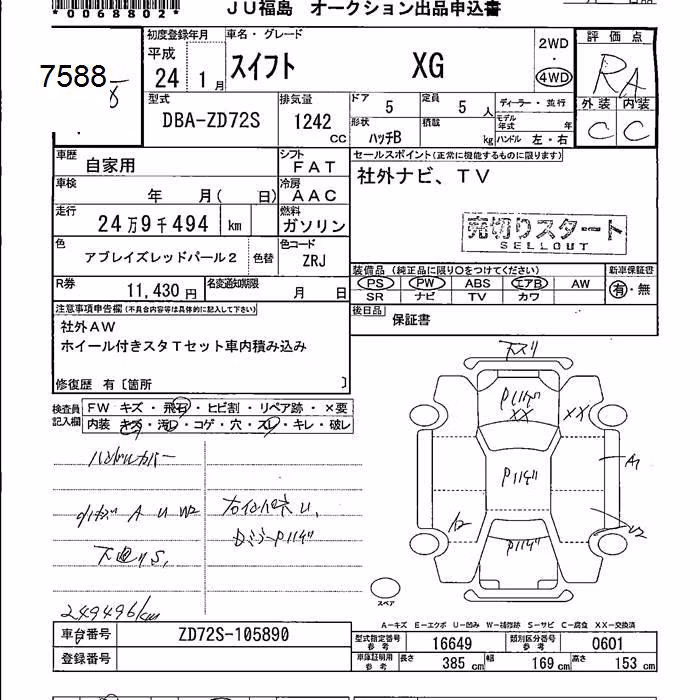 *0068802*
JU福島 オークション出品申込書
7588
初度登録年月
平成
24 1月
車名・グレード
スイフト XG
2WD
・
4WD
評価点
RA
外装 内装
C C
型式
DBA-ZD72S
排気量
1242
CC
ドア 5
定員 5 人
ディーラー・並行
形状
ハッチB
積載
kg
モデル年式 年
ハンドル 左・右
車歴
自家用
シフト
FAT
セールスポイント(正常に機能するものに限ります)
社外ナビ、TV
車検
年 月( 日)
冷房
AAC
走行
24万9千494 km
燃料
ガソリン
売切りスタート
SELLOUT
色
アブレイズレッドパール2
色替
色コード
ZRJ
装備品(純正品に限り○をつけてください)
PS PW ABS エアB AW
SR ナビ TV カワ
新車保証書
有・無
R券
11,430円
名変通知期限
月 日
後日品
保証書
注意事項申告欄(不具合内容等は具体的に記入して下さい)
社外AW
ホイール付きスタTセット車内積み込み
修復歴 有〔箇所 〕
検査員記入欄
FW キズ・飛石・ヒビ割・リペア跡・×要
内装 キズ・汚レ・コゲ・穴・スレ・キレ・破レ
ハンドルカバー
A U W2
下廻りS,
249496km
下スリ
XX
XX
A1
U2
スペア
A-キズ E-エクボ U-凹み W-補修跡 S-サビ C-腐食 XX-交換済
車台番号
ZD72S-105890
登録番号
型式指定番号 参考
16649
類別区分番号 参考
0601
車庫証明用 参考
長さ 385 cm
幅 169 cm
高さ 153 cm